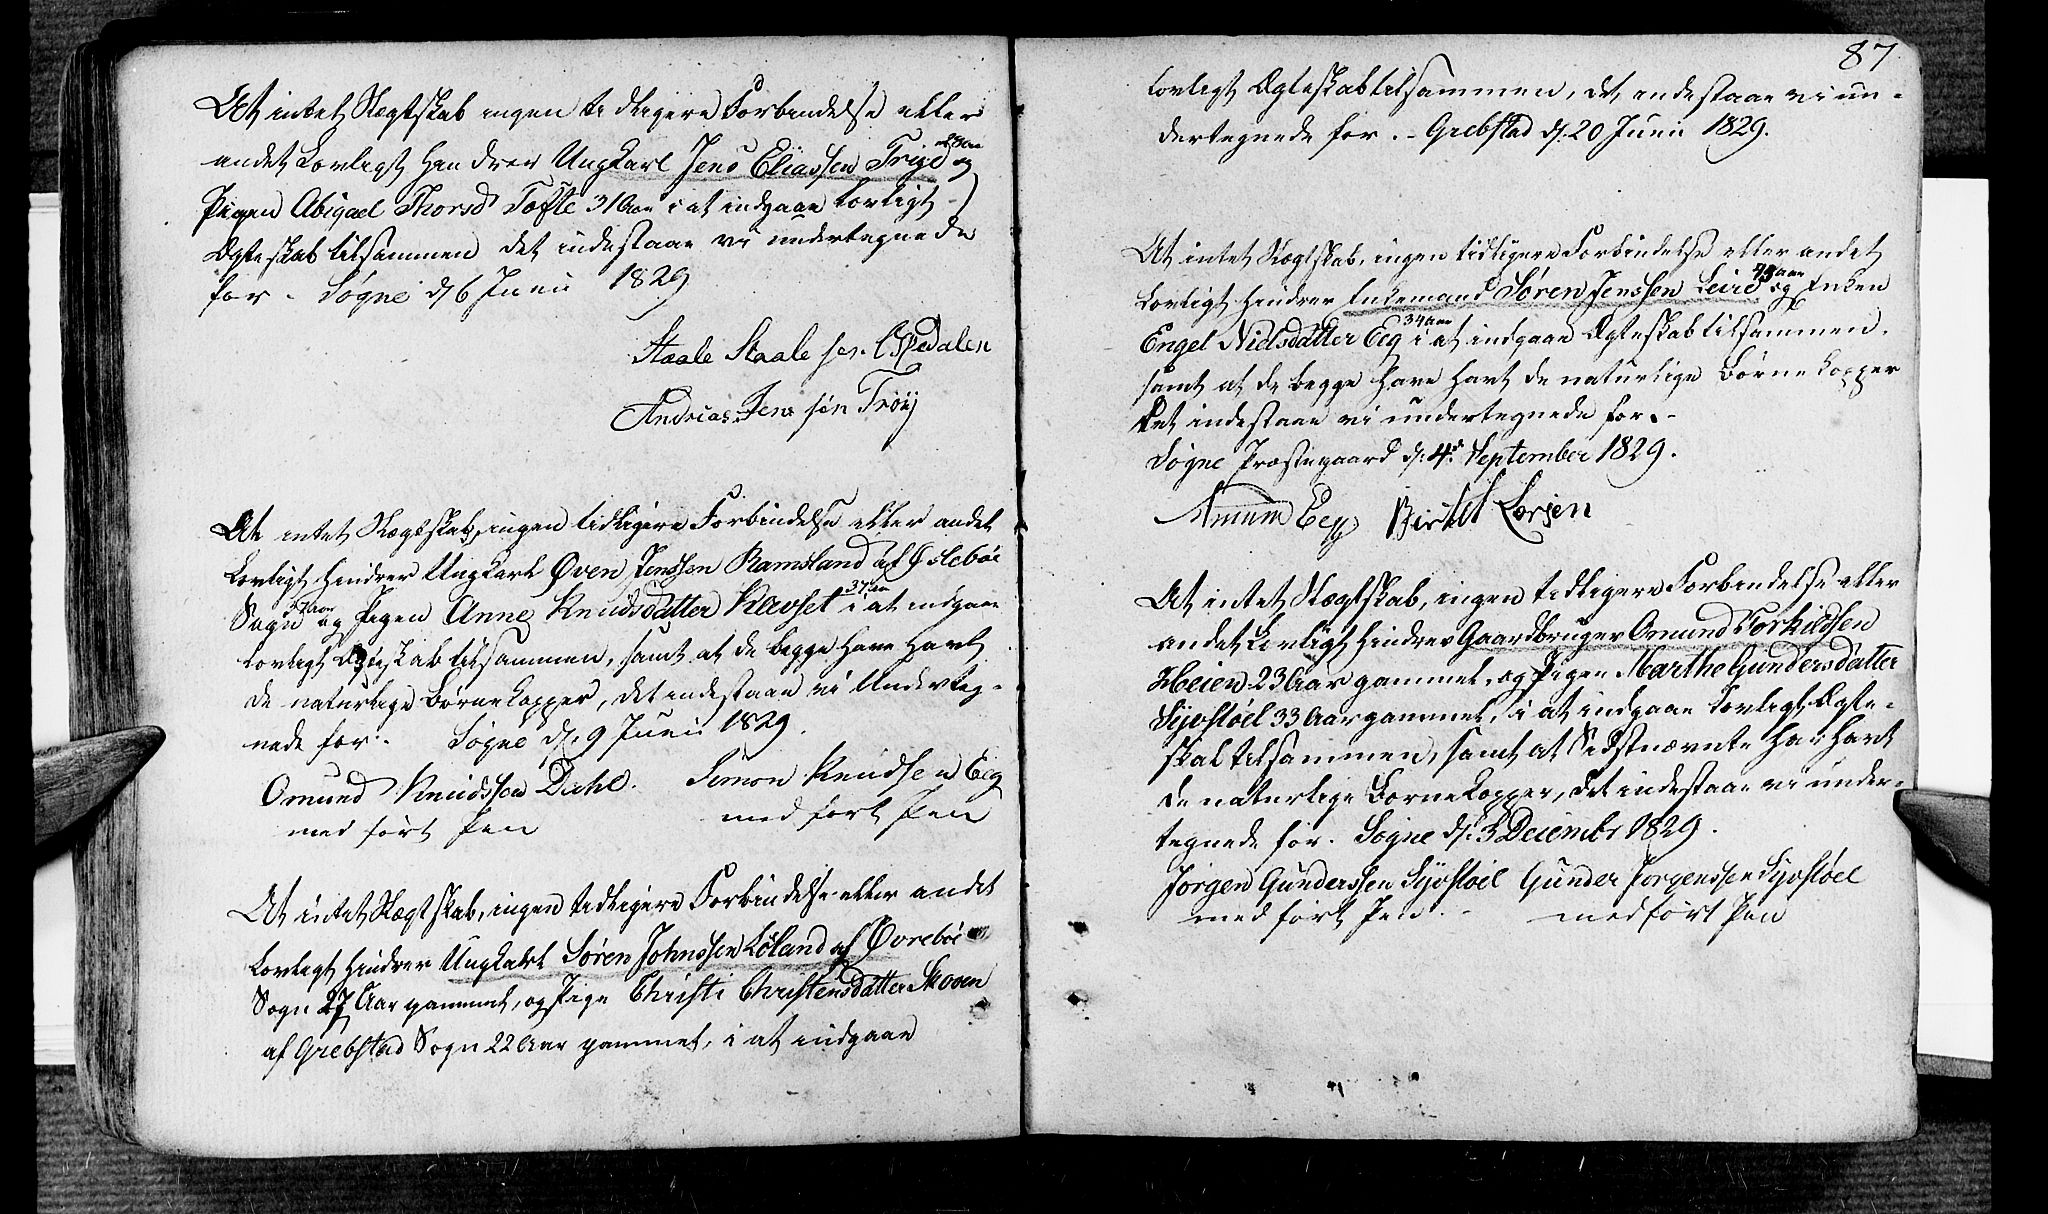 At intet Slægtskab ingen tidligere Forbindelse eller
andet Lovligt hindrer Ungkarl Jens Eliassen Trye 28 Aar og
Pigen Abigael Thorsd Tofte 31 Aar i at indgaae lovligt
Ægteskab tilsammen det indestaae vi undertegnede
for - Søgne d/ 6 Junii 1829
Staale Staale sen
Andreas Jens sen Trøy
At intet Slægtskab, ingen tidligere Forbindelse eller andet
Lovligt hindrer Ungkarl Øven Jenssen Ramsland af Øslebøe
Sogn 37 Aar og Pigen Anne Knudsdatter Klevset 37 Aar i at indgaae
lovligt Ægteskab tilsammen, samt at de begge have havt
de naturlige Børnekopper, det indestaae vi Underteg-
nede for. Søgne d/ 9 Junii 1829.
Omund Knudssen Dahl. Simon Knudsen Eeg
med ført Pen med ført Pen
At intet Slægtskab, ingen tidligere Forbindelse eller andet
Lovligt hindrer Ungkarl Søren Johnssen Løland af Øvrebøe
Sogn 27 Aar gammel, og Pige Christi Christensdatter Skoven
af Grebstad Sogn 22 Aar gammel, i at indgaae
87
lovligt Ægteskab tilsammen, det indestaae vi un-
dertegnede for. - Grebstad d/ 20 Junii 1829.
At intet Slægtskab, ingen tidligere Forbindelse eller andet
Lovligt hindrer Enkemand Søren Jenssen Leire Aar og Enken
Engel Nielsdatter Eeg 34 Aar i at indgaae Ægteskab tilsammen.
samt at de begge have havt de naturlige Børnekopper
det indestaae vi undertegnede for. -
Søgne Præstegaard d/ 4de September 1829.
Amum Eeg Birtel Lorsen
At intet Slægtskab, ingen tidligere Forbindelse eller
andet Lovligt hindrer Gaardbruger Omund Torkildsen
Heien 23 Aar gammel, og Pigen Marthe Gundersdatter
Syvstøel 33 Aar gammel, i at indgaae lovligt Ægte-
skab tilsammen, samt at Sidstnævnte har havt
de naturlige Børnekopper, det indestaae vi under-
tegnede for. Søgne d/ 3 Decembr 1829.
Jørgen Gunderssen Syvstøel Gunder Jørgenssen Syvstøel
med ført Pen. - med ført Pen